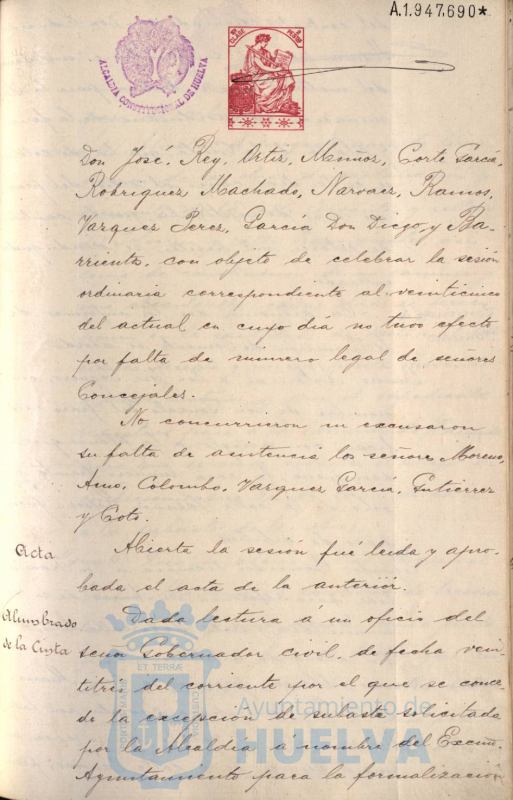 A.1.947.690*
ALCALDIA CONSTITUCIONAL DE HUELVA
Don José, Rey, Ortiz, Muñoz, Corte García,
Rodriguez Machado, Narvaez, Ramos,
Vazquez Perez, García Don Diego, y Ba-
rriento, con objeto de celebrar la sesión
ordinaria correspondiente al veinticinco
del actual en cuyo día no tuvo efecto
por falta de número legal de señores
Concejales.
No concurrieron ni excusaron
su falta de asistencia los señores Moreno,
Amo, Colombo, Vazquez García, Gutierrez
y Coto.
Acta
Abierta la sesión fué leida y apro-
bada el acta de la anterior.
Alumbrado
de la Cinta
Dada lectura á un oficio del
señor Gobernador civil, de fecha vein-
titrés del corriente por el que se conce-
de la excepción de subasta solicitada
por la Alcaldía á nombre del Excmo.
Ayuntamiento para la formalización
Ayuntamiento de
HUELVA